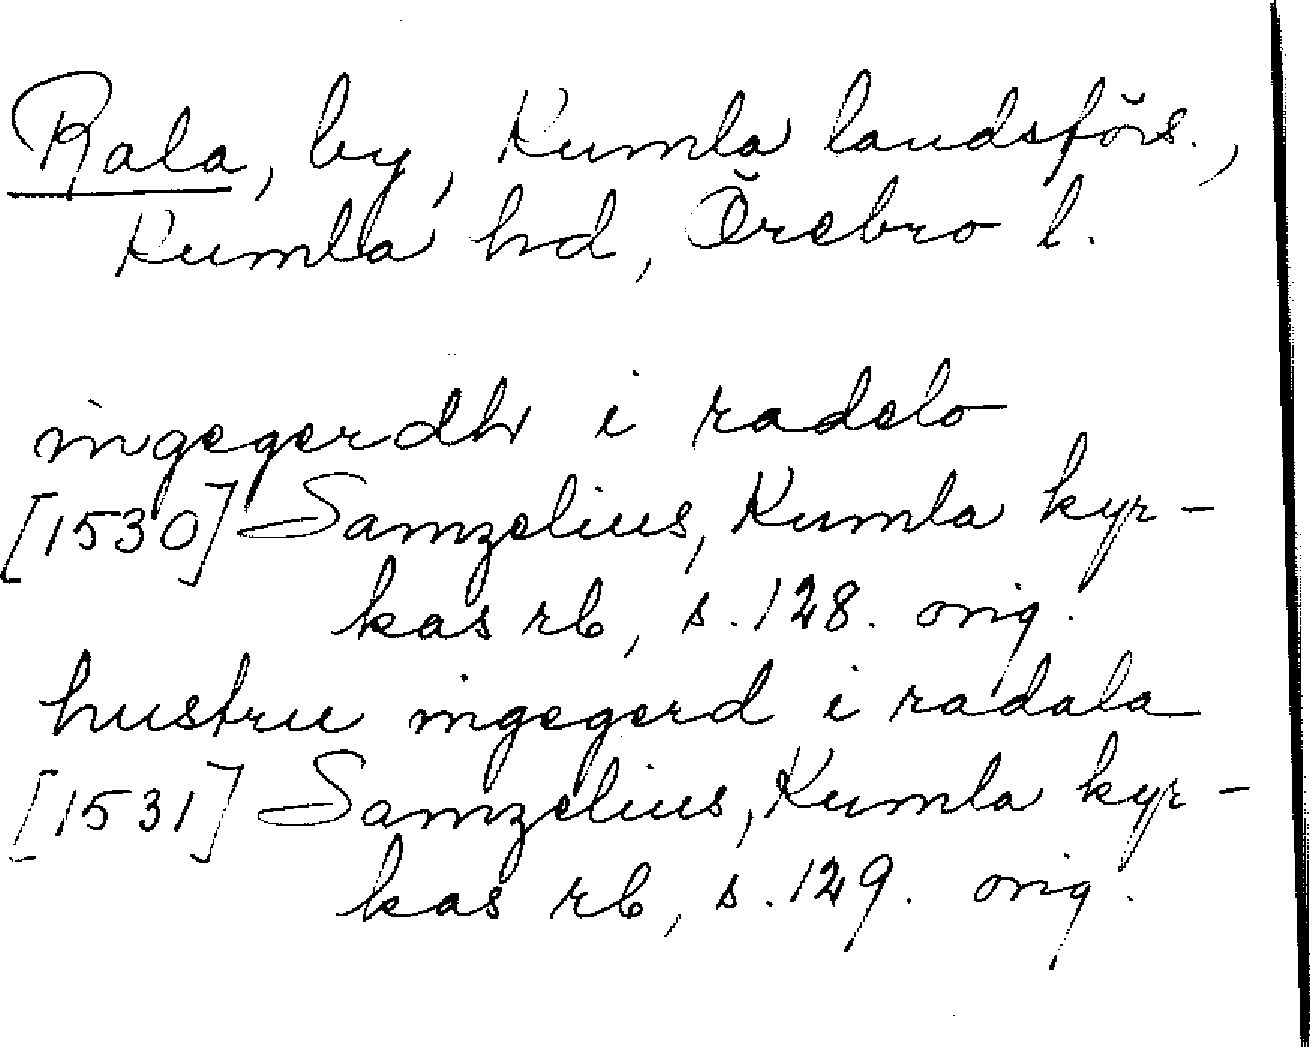 Rala, by, Kumla landsförs.,
Kumla hd, Örebro l.
ingegerdh i radelo
[1530] Samzelius, Kumla kyr-
kas rb, s. 128. orig.
hustru ingegerd i radala
[1531] Samzelius, Kumla kyr-
kas rb, s. 129. orig.